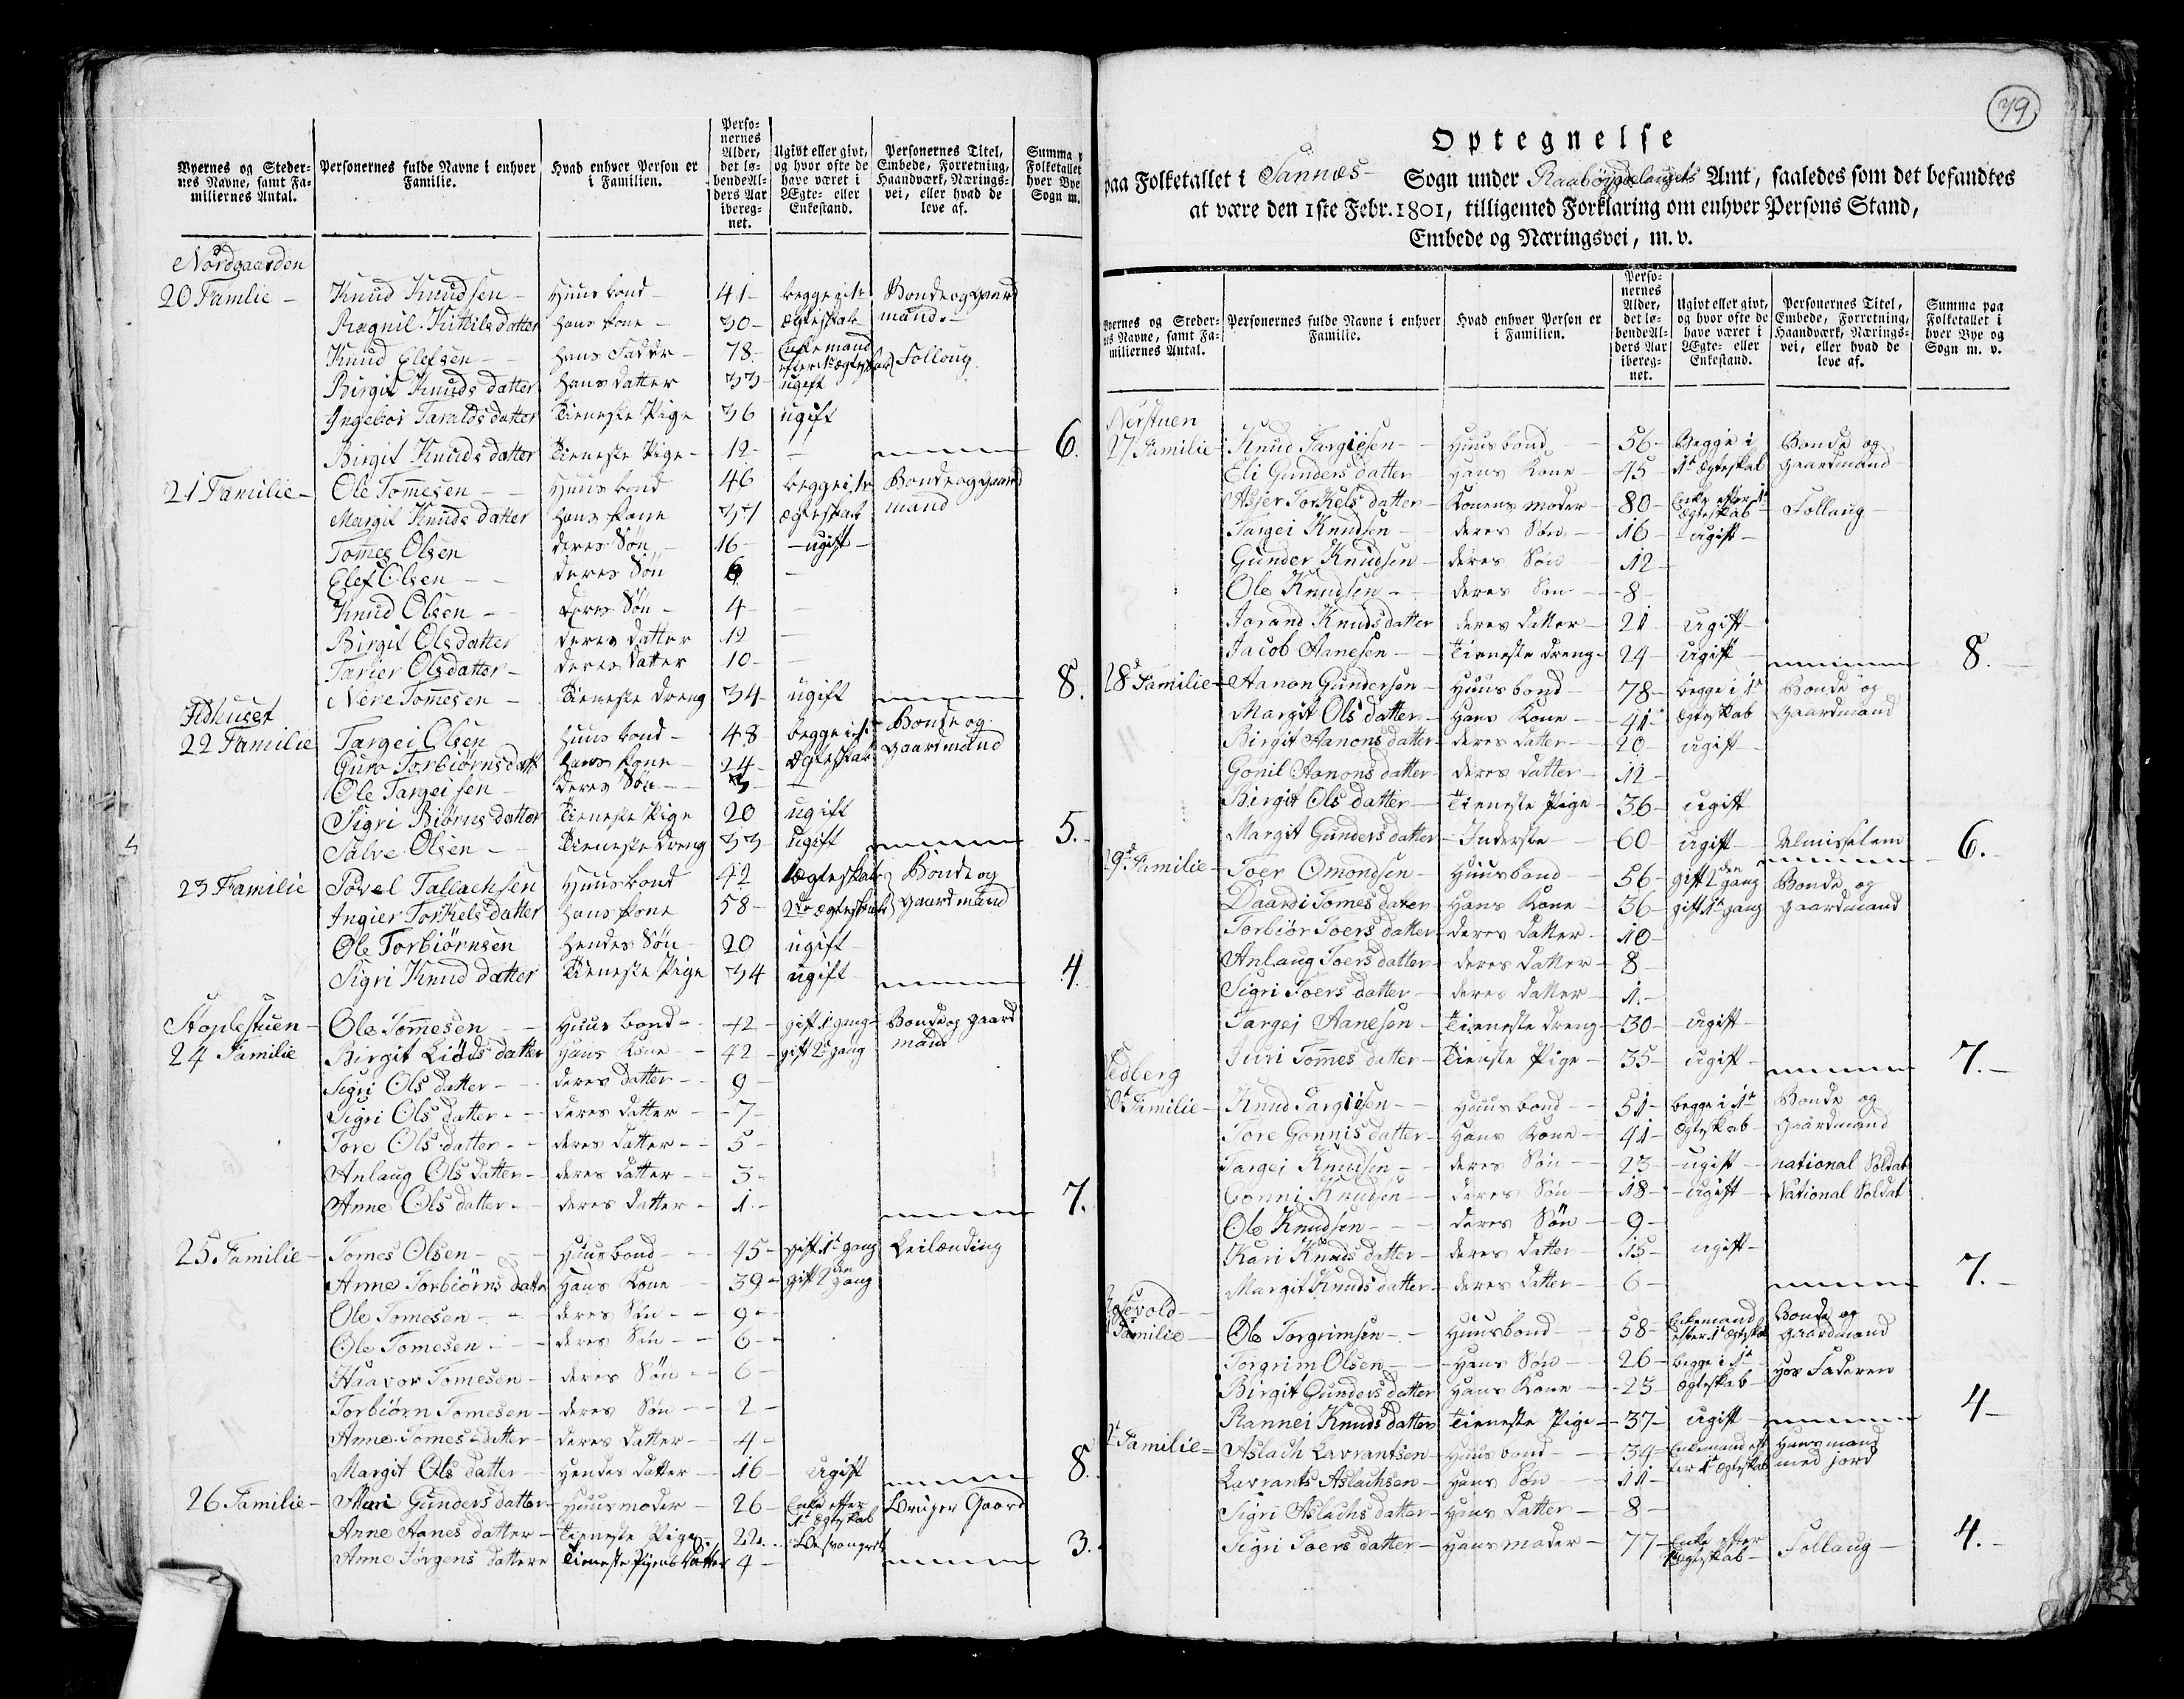 Byernes og Steder- nes Navne, samt Fa- miliernes Antal. Personernes fulde Navne i enhver Familie. Hvad enhver Person er i Familien. Perso- nernes Alder, det lø- bende Al- ders Aar ibereg- net. Ugivt eller givt, og hvor ofte de have været i Ægte- eller Enkestand. Personernes Titel, Embede, Forretning, Haandværk, Nærings- vei, eller hvad de leve af. Summa Folketallet hver Bye Sogn m.
Nordgaarden
20 Famlie - Knud Knudsen - Huusbond - 41 - begge i 1te Bonde og gaard
Ragnil Kittilsdatter hans kone - 30 - Ægteskab mand. -
Knud Elefsen - hans Fader - 78 - Enkemand
Birgit Knudsdatter hans datter 33 - ugift Folloug
Ingebor Taraldsdatter Tieneste Pige 36 ugift
Birgit Knudsdatter Tieneste Pige - 12 - - 6.
21 Familie - Ole Tommesen - Huusbond 46 begge i 1te Bonde og gaard
Margit Knudsdatter hans kone 37 Ægteskab mand
Tomes Olsen deres Søn 16 - - ugift -
Elef Olsen - deres Søn 6 -
Knud Olsen - deres Søn - 4 - -
Birgit Olsdatter deres datter 12 -
Tarier Olsdatter - deres datter 10 - -
Nere Tommesen - Tieneste dreng 34 - ugift 8.
Fidhuset
22 Familie Targei Olsen Huusbond - 48 - begge i 1te Bonde og
Guro Torbiørnsdatt hans kone - 24 - Ægteskab gaardmand
Ole Targeisen deres Søn - 3 - -
Sigri Biørnsdatter Tieneste Pige 20 ugift
Salve Olsen - Tieneste dreng 33 ugift 5. -
23 Familie Povel Tallachsen Huusbond 42 1 Ægteskab Bonde og
Ingier Torkelsdatter hans kone 58 - 2det Ægteskab gaardmand
Ole Torbiørnsen hendes Søn - 20 ugift -
Sigri Knuddatter Tieneste Pige 34 ugift - 4.
Stoplestuen - Ole Tommesen Huusbond - 42 - gift 1te gang - Bonde og gaard
24 Familie Birgit Liødsdatter hans Kone - 42 - gift 2 gang mand
Sigri Olsdatter - deres datter - 9 -
Sigri Olsdatter - deres datter - 7 -
Tore Olsdatter - deres datter - 5 -
Anlaug Olsdatter - deres datter - 3 -
Anne Olsdatter - deres datter - 1. - 7.
25 Familie - Tomes Olsen - Huusbond - 45 - gift 1te gang Leilænding
Anne Torbiørnsdatter Hans Kone 39 - gift 2den gang
Ole Tomesen - deres Søn - 9 -
Ole Tomesen - deres Søn - 6 -
Haavor Tomesen - deres Søn - 6 -
Torbiørn Tomesen - deres Søn - 2 -
Anne Tomesdatter - deres datter - 4 -
Margit Olsdatter - hendes datter - 16 - ugift 8.
26 Familie - Mari Gundersdatter - Huusmoder - 26 - Enke efter 1te Ægteskab Bruger Gaard
Anne Aanesdatter - Tieneste Pige - 22. Besvangret
Anne Jørgens dattere Tieneste Pigens datter 4 - 3.
79
Optegnelse
paa Folketallet i Sannæs - Sogn under Raabøygdelaugets Amt, saaledes som det befandtes
at være den 1ste Febr. 1801, tilligemed Forklaring om enhver Persons Stand,
Embede og Næringsvei, m. v.
Byernes og Steder- nes Navne, samt Fa- miliernes Antal. Personernes fulde Navne i enhver Familie. Hvad enhver Person er i Familien. Perso- nernes Alder, det lø- bende Al- ders Aar ibereg- net. Ugivt eller givt, og hvor ofte de have været i Ægte- eller Enkestand. Personernes Titel, Embede, Forretning, Haandværk, Nærings- vei, eller hvad de leve af. Summa paa Folketallet i hver Bye og Sogn m. v.
Nerstuen
27 Familie - Knud Targiesen - Huusbond - 56 - Begge i Bonde og
Eli Gundersdatter Hans Kone - 45 - 1te Ægteskab gaardmand
Asjer Torkelsdatter - Konens moder - 80 - Enke efter 1te Ægteskab Follaug -
Targei Knudsen - deres Søn - 16 - - ugift -
Gunder Knudsen - deres Søn - 12 -
Ole Knudsen - deres Søn - 8 -
Jorand Knudsdatter deres datter - 21 - ugift
Jacob Aanesen - Tieneste dreng - 24 - ugift - 8. -
28de Familie - Aanon Gundersen - Huusbond - 78 - begge i 1te Bonde og
Margit Olsdatter - Hans Kone - 41 - Ægteskab Gaardmand
Birgit Aanonsdatter - deres datter - 20 - ugift -
Gonil Aanonsdatter - deres datter - 12 -
Birgit Olsdatter - Tieneste Pige - 36 - ugift
Margit Gundersdatter - Inderste - 60 - ugift - Almisselem 6. -
29de Familie - Toer Omondsen - Huusbond - 56 - gift 2den gang Bonde og
Daardi Tomesdater Hans Kone - 36 - gift 1te gang gaardmand
Torbiør Toersdatter - deres datter - 10 -
Anlaug Toersdatter - deres datter - 8 -
Sigri Toersdatter - deres datter - 1. -
Targej Aanesen - Tieneste dreng - 30 - - ugift -
Juri Tommesdatter - Tienste Pige - 35 - ugift - 7. -
Vedberg
30te Familie - Knud Targiesen - Huusbond - 51 - begge i 1te Bonde og
Tore Gonnisdatter - Hans Kone - 41 - Ægteskab - Gaardmand
Targej Knudsen - deres Søn - 23 - - ugift - national Soldat
Gonni Knudsen - deres Søn - 18 - - ugift - National Soldat
Ole Knudsen - deres Søn - 9 -
Kari Knudsdatter - deres datter - 15 - ugift -
Margit Knudsdatter - deres datter - 6 - 7. -
Familie - Ole Torgrimsen - Huusbond - 58 - Enkemand efter 1te Ægteskab Bonde og gaardmand
Torgrim Olsen - Hans Søn - 26 - begge i 1te Hos Faderen
Birgit Gundersdatter Hans Kone - 23 - Ægteskab -
Rannei Knudsdatter Tieneste Pige - 37 - ugift - 4 -
Familie - Aslach Lavrantsen - Huusbond - 34 - Enkemand ef- ter 1te Ægteskab Huusmand med jord
Lavrants Aslachsen - Hans Søn - 11 -
Sigri Aslachsdatter - Hans datter - 8 -
Sigri Toersdatter - Hans moder - 77 - Enke efter 1te Ægteskab - Follaug - 4. -